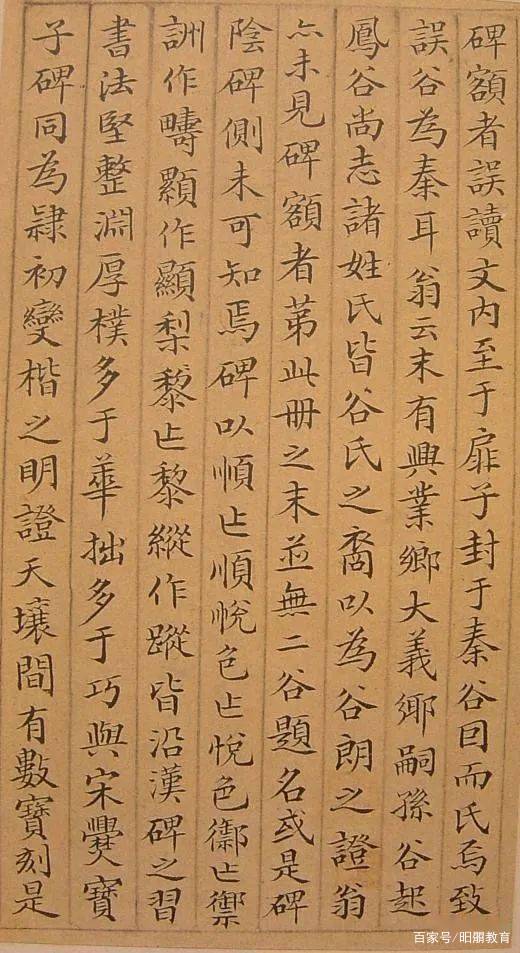 碑額者誤讀文內至于扉子封于秦谷囙而氏焉致
誤谷為秦耳翁云末有興業鄉大義鄉嗣孫谷起
鳳谷尚志諸姓氏皆谷氏之裔以為谷朗之證翁
亦未見碑額者苐此冊之末並無二谷題名或是碑
陰碑側未可知焉碑以愼㐀順悅色㐀悅色禦㐀禦
詶作疇顯作顯梨黎㐀黎縱作蹤皆沿漢碑之習
書法堅整淵厚樸多于華拙多于巧與宋爨寶
子碑同為隸初變楷之明證天壤間有數寶刻是
百家号/昭嗣教育